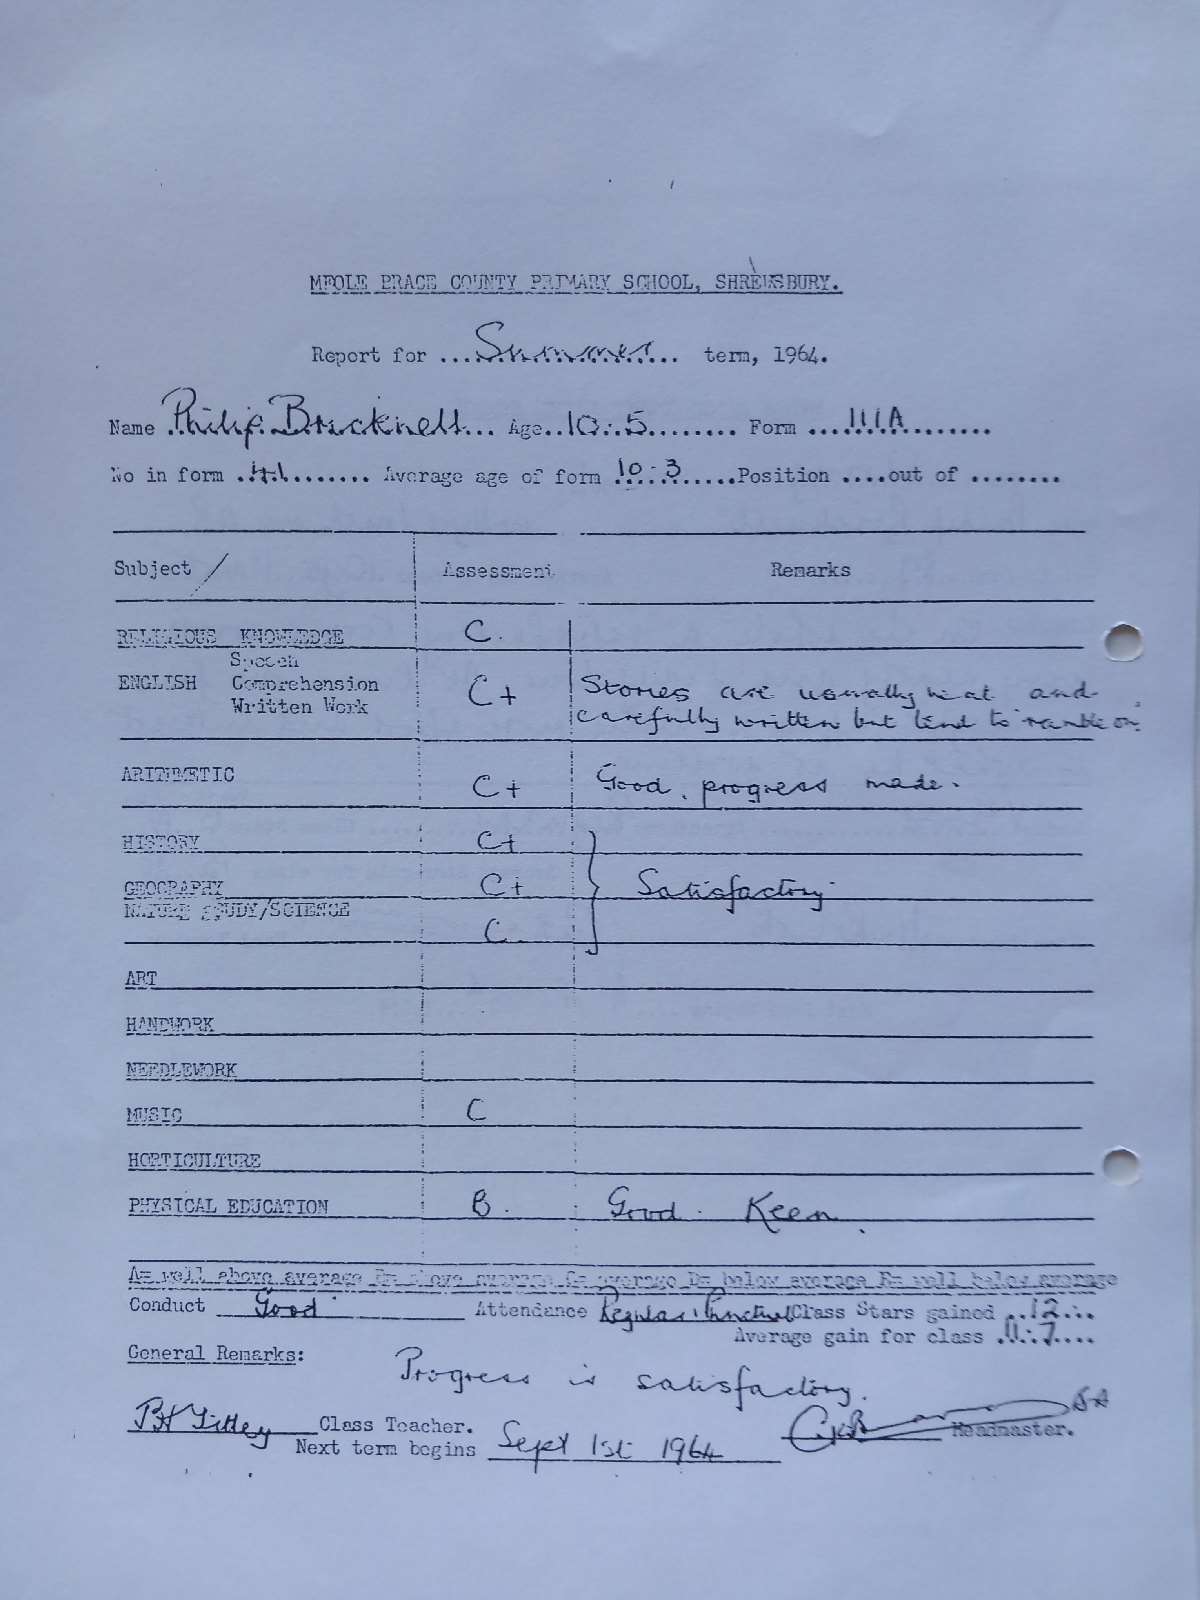 MEOLE BRACE COUNTY PRIMARY SCHOOL, SHREWSBURY.
Report for ...Summer... term, 1964.
Name Philip Bricknell... Age..10:5........ Form ...IIIA.......
No in form .41....... Average age of form 10:3.....Position ....out of ........
Subject / Assessment Remarks
RELIGIOUS KNOWLEDGE C.
ENGLISH Speech Comprehension Written Work C+ Stories are usually neat and
carefully written but tend to ramble on.
ARITHMETIC C+ Good progress made.
HISTORY C+
GEOGRAPHY C+ Satisfactory
NATURE STUDY/SCIENCE C.
ART
HANDWORK
NEEDLEWORK
MUSIC C
HORTICULTURE
PHYSICAL EDUCATION B. Good. Keen.
A= well above average B= above average C= average D= below average E= well below average
Conduct Good Attendance Regular & Punctual Class Stars gained ..12...
Average gain for class .11.7....
General Remarks: Progress is satisfactory.
Class Teacher. Headmaster.
Next term begins Sept 1st 1964